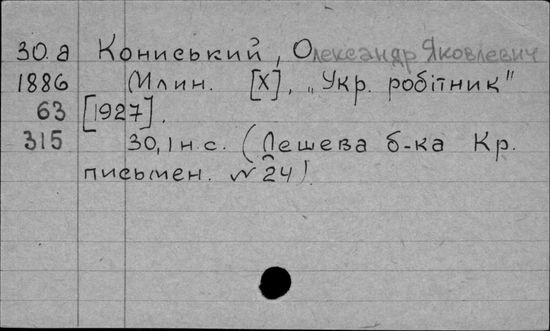 30.а Кониський, Олександр Яковлевич
1886 Млин. [Х], „Укр. робітник"
63 [1927].
315 30, 1 н.с. (Дешева б-ка Кр.
письмен. № 24)